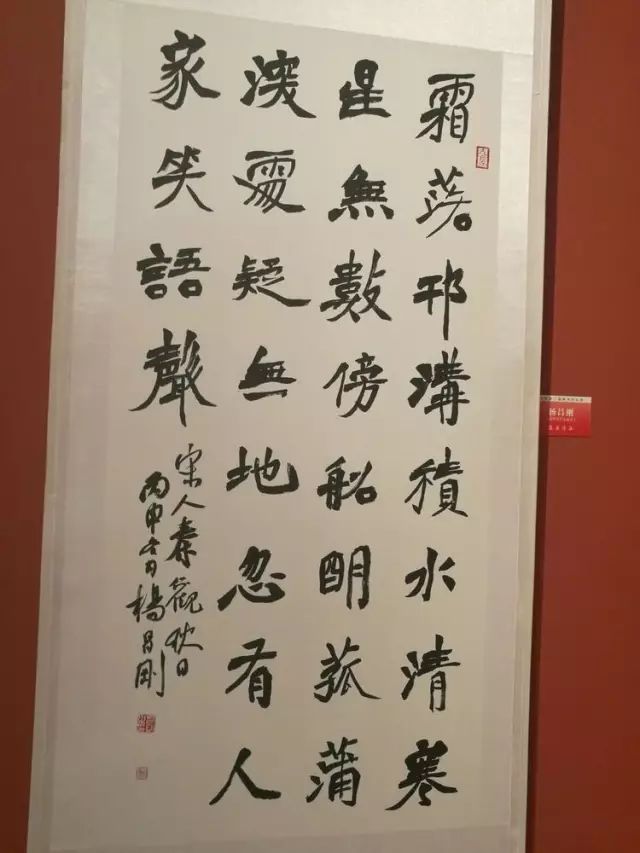 霜落邗溝積水清寒
星無數傍船明菰蒲
深處疑無地忽有人
家笑語聲
宋人秦觀秋日
丙申 楊昌剛
杨昌刚